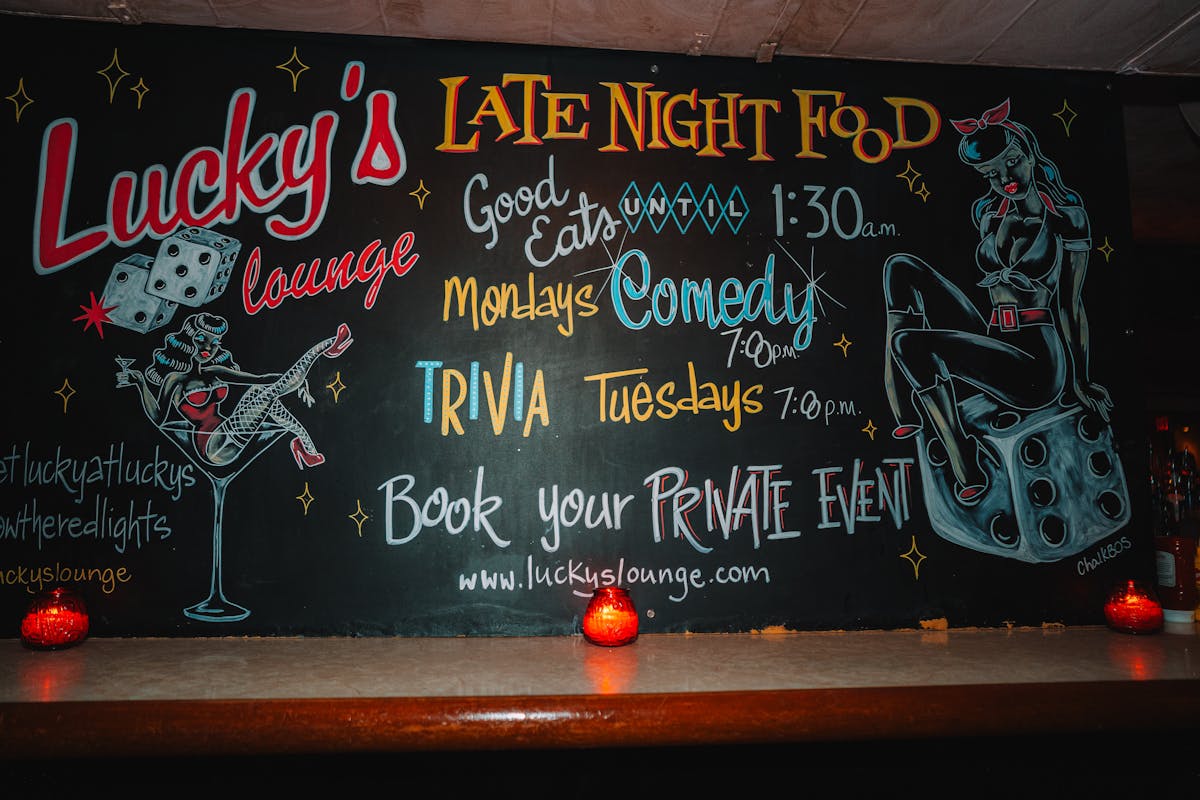 Lucky's
lounge
LATE NIGHT FOOD
Good
Eats UNTIL 1:30a.m.
Mondays Comedy
7:00pm
TRIVIA Tuesdays 7:00p.m.
Book your PRIVATE EVENT
www.luckyslounge.com
etluckyatluckys
owtheredlights
uckyslounge
ChalkBOS